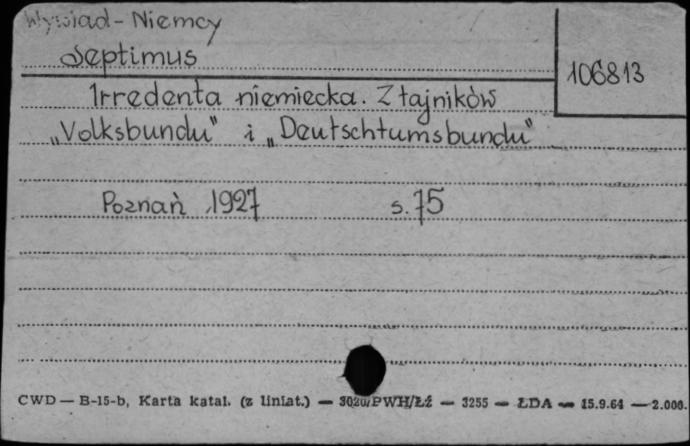 Wywiad - Niemcy
Septimus
106813
Irredenta niemiecka. Z tajników
„Volksbundu" i „Deutschtumsbundu"
Poznań 1927 s. 75
CWD — B-15-b, Karta katal. (z liniat.) — 3020/PWH/Łź — 3255 — ŁDA — 15.9.64 — 2.000.